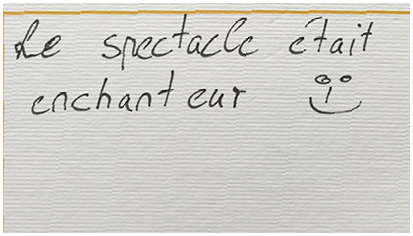 Le spectacle était
enchanteur